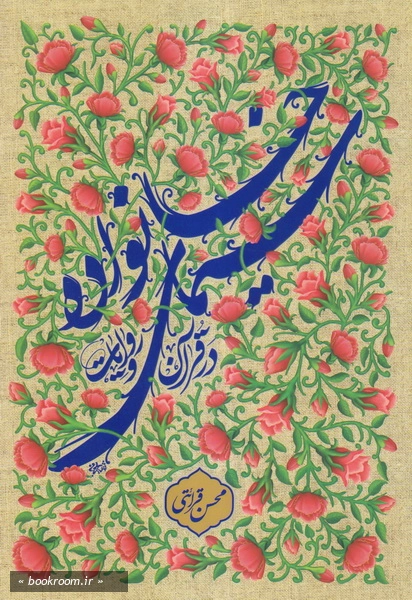 سیمای خانواده
در قرآن و روایات
محسن قرائتی
« bookroom.ir »